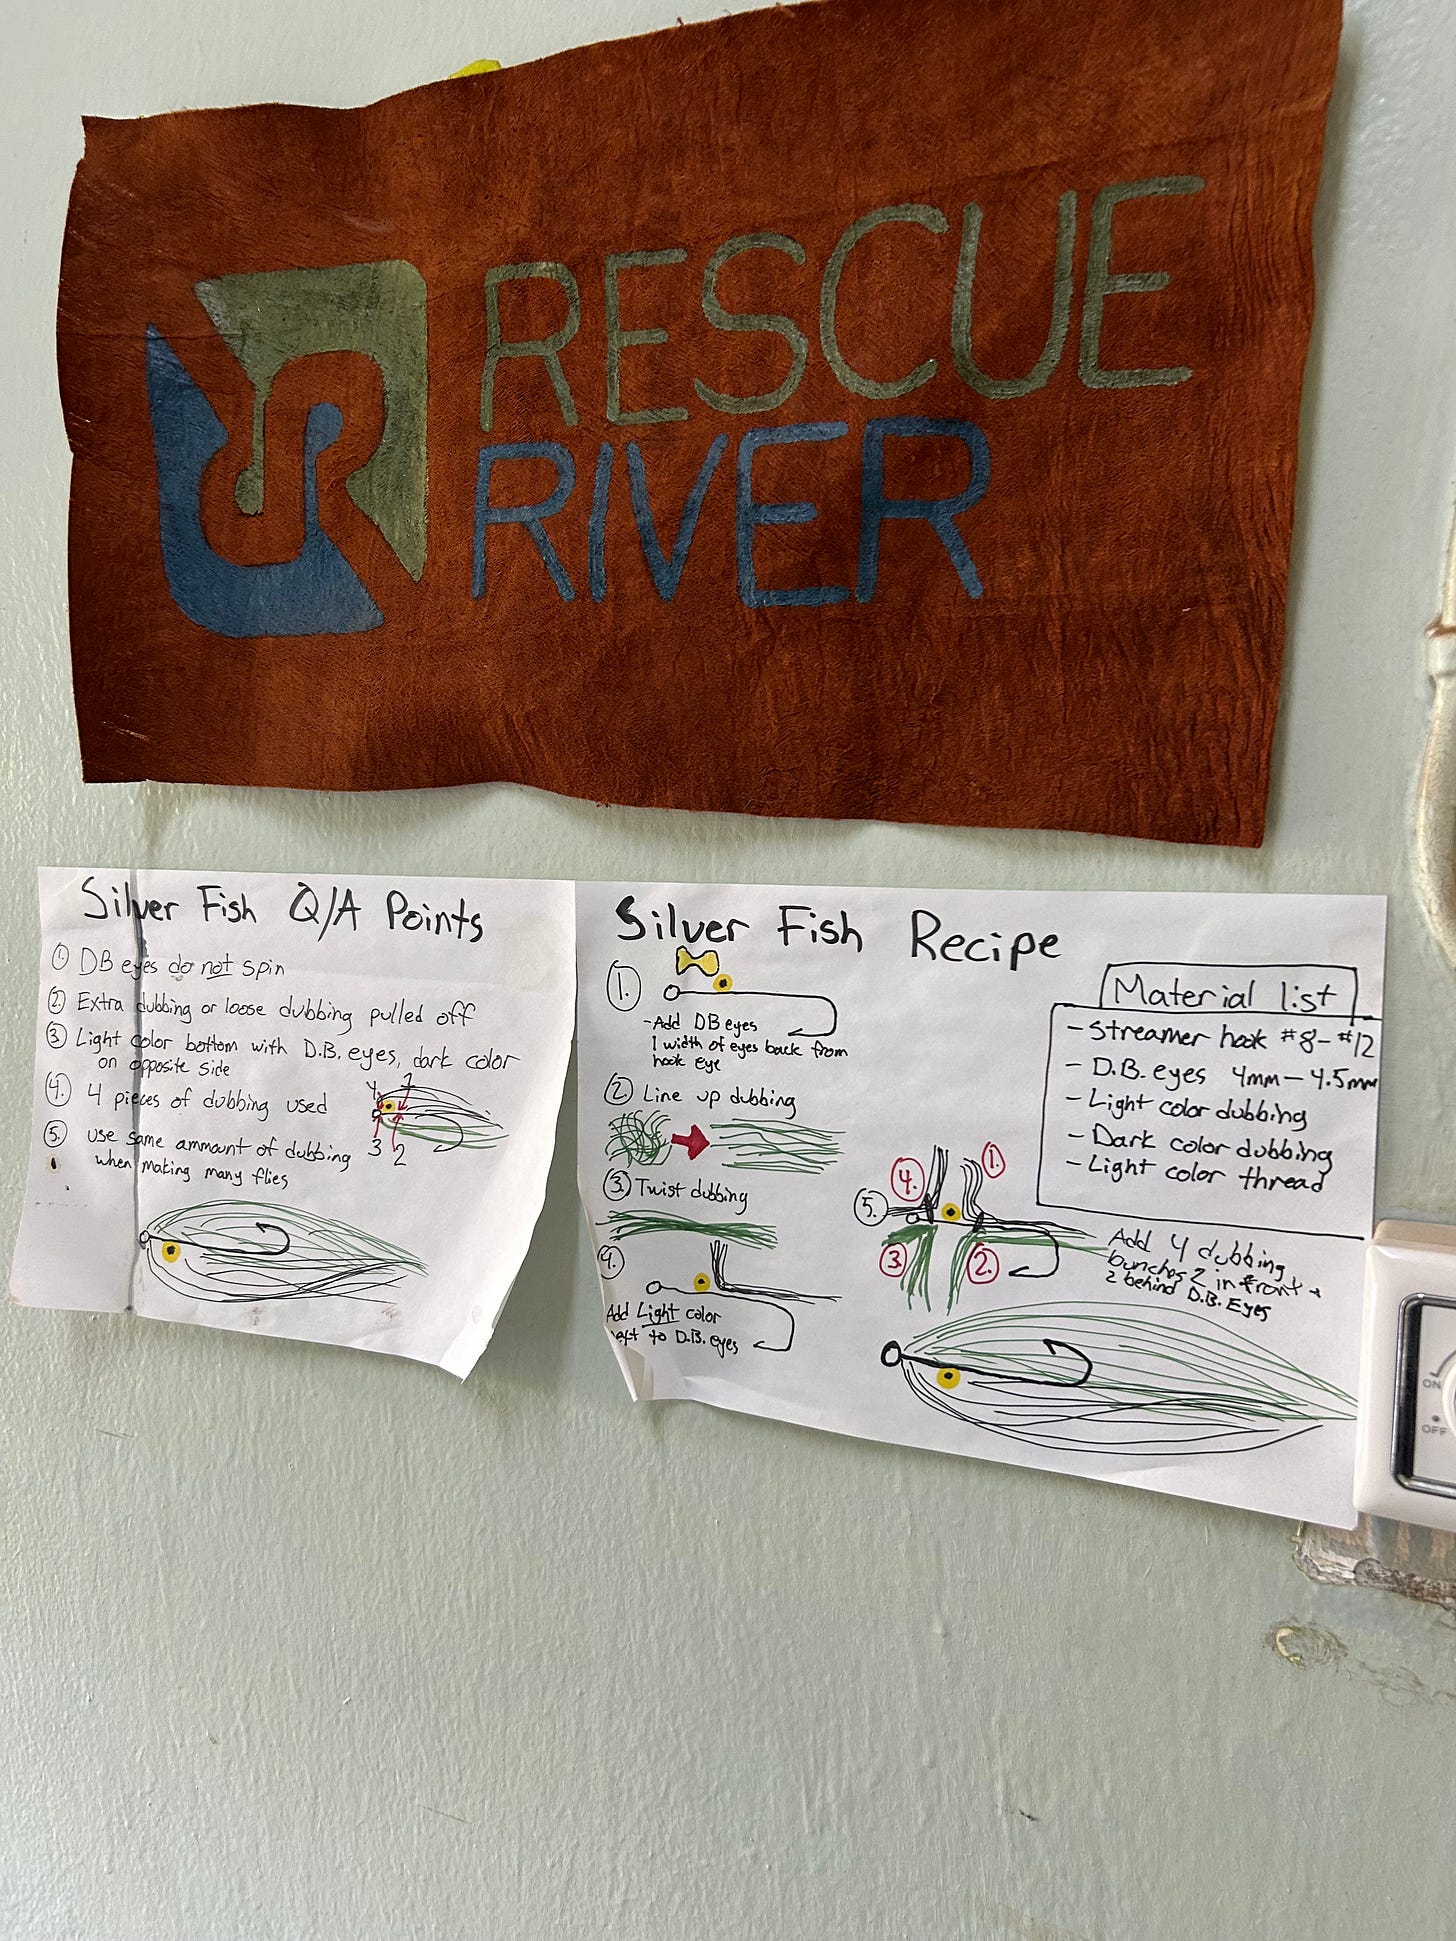 RESCUE
RIVER
Silver Fish Q/A Points
1. DB eyes do not spin
2. Extra dubbing or loose dubbing pulled off
3. Light color bottom with D.B. eyes, dark color
on opposite side
4. 4 pieces of dubbing used
5. use same ammount of dubbing
when making many flies
4 1
3 2
Silver Fish Recipe
1.
-Add DB eyes
1 width of eyes back from
hook eye
2. Line up dubbing
3. Twist dubbing
4.
Add Light color
next to D.B. eyes
Material list
- Streamer hook #8-#12
- D.B. eyes 4mm-4.5mm
- Light color dubbing
- Dark color dubbing
- Light color thread
4. 1.
5.
3. 2.
Add 4 dubbing
bunches 2 in front +
2 behind D.B. Eyes
ON
OFF